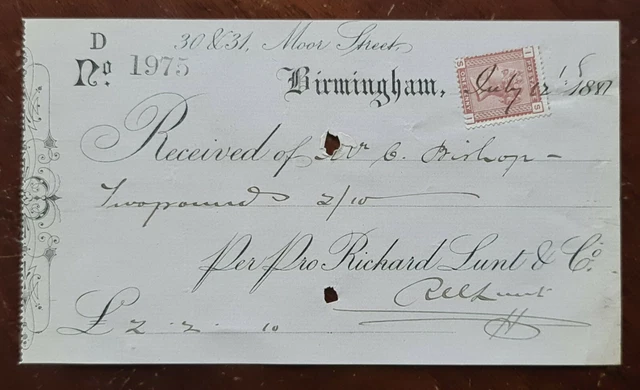 D
30 & 31, Moor Street
No. 1975
Birmingham, July 12 1881
Received of Mr C. Bishop –
Two pounds 2/10
Per Pro Richard Lunt & Co.
£ 2 . 2 . 10